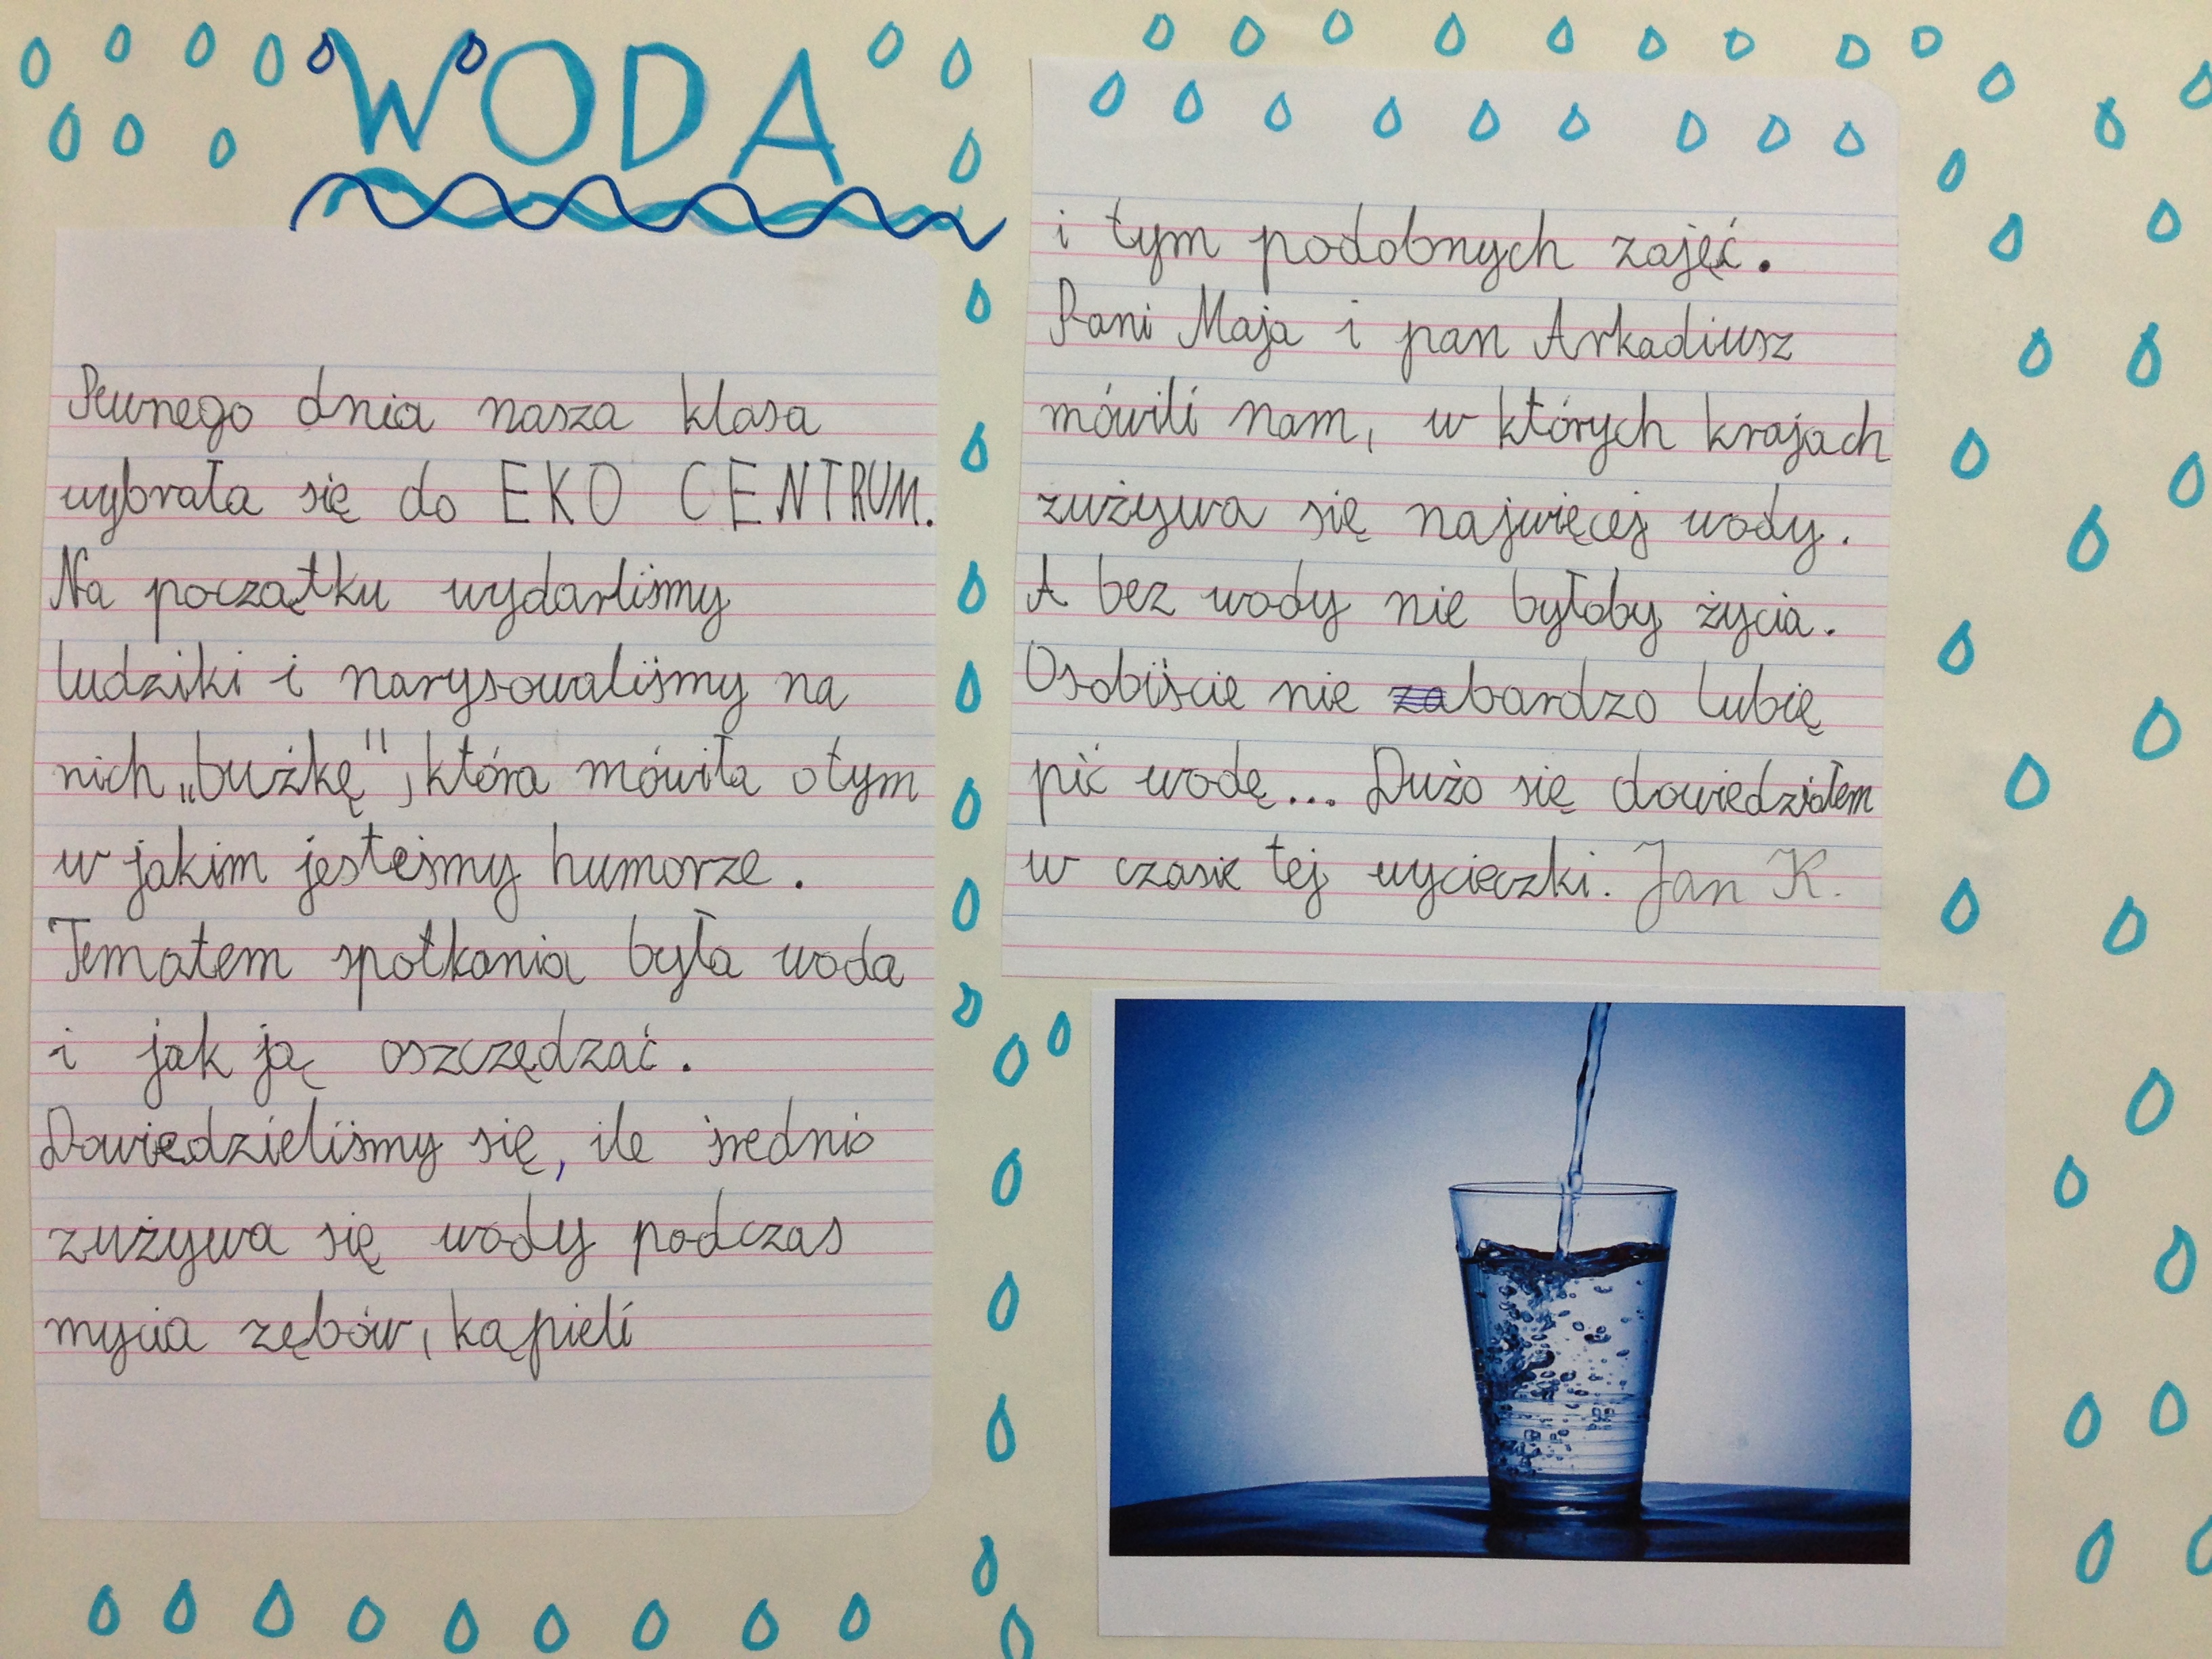 WODA
Pewnego dnia nasza klasa
wybrała się do EKO CENTRUM.
Na początku wydarliśmy
ludziki i narysowaliśmy na
nich „buźkę", która mówiła o tym
w jakim jesteśmy humorze.
Tematem spotkania była woda
i jak ją oszczędzać.
Dowiedzieliśmy się, ile średnio
zużywa się wody podczas
mycia zębów, kąpieli
i tym podobnych zajęć.
Pani Maja i pan Arkadiusz
mówili nam, w których krajach
zużywa się najwięcej wody.
A bez wody nie byłoby życia.
Osobiście nie bardzo lubię
pić wodę... Dużo się dowiedziałem
w czasie tej wycieczki. Jan K.